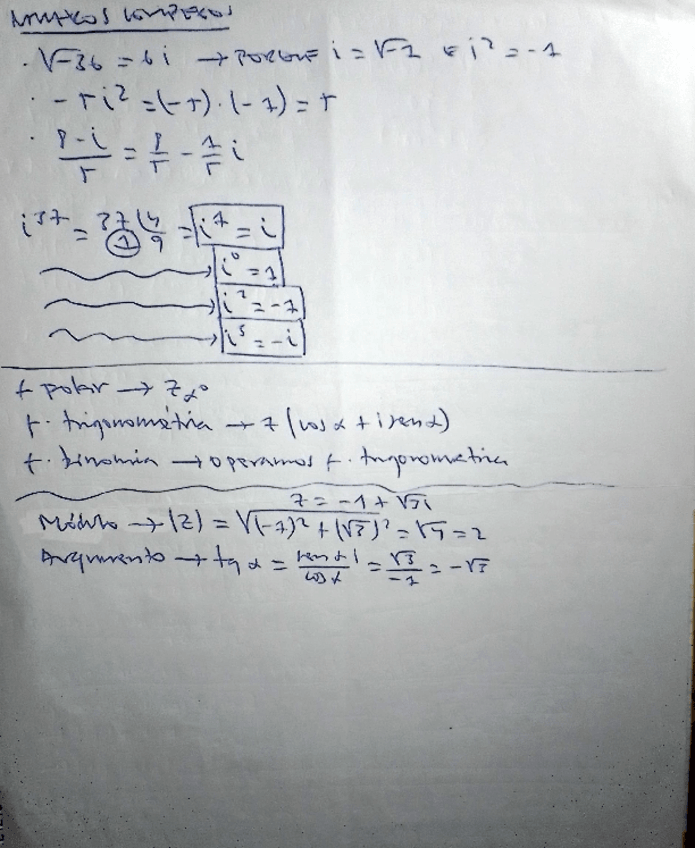 NÚMEROS COMPLEJOS
· √-36 = 6i → PORQUE i = √-1 E i² = -1
· -5i² = (-5)·(-1) = 5
· 8-i/5 = 8/5 - 1/5 i
i³⁷ = 37 | 4 1 9 = i¹ = i
i⁰ = 1
i² = -1
i³ = -i
f polar → Zα°
f. trigonométrica → z (cos α + i sen α)
f. binomia → operamos f. trigonometrica
z = -1 + √3i
Módulo → |Z| = √(-1)² + (√3)² = √4 = 2
Argumento → tg α = sen α / cos α = √3/-1 = -√3